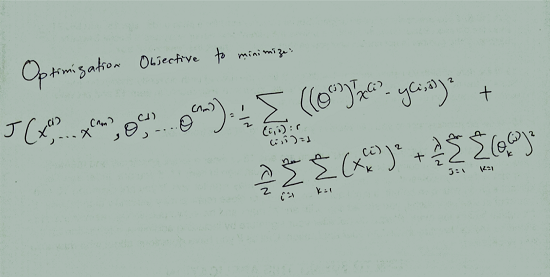 Optimization Objective to minimize:
J(x⁽¹⁾,...x⁽ⁿᵐ⁾, θ⁽¹⁾,...θ⁽ⁿᵐ⁾) = 1/2 Σ_{(i,j):r(i,j)=1} ((θ⁽ʲ⁾)ᵀx⁽ⁱ⁾ - y⁽ⁱ,ʲ⁾)² +
λ/2 Σ_{i=1}^{nₘ} Σ_{k=1}^{n} (x_k⁽ⁱ⁾)² + λ/2 Σ_{j=1}^{nᵤ} Σ_{k=1}^{n} (θ_k⁽ʲ⁾)²